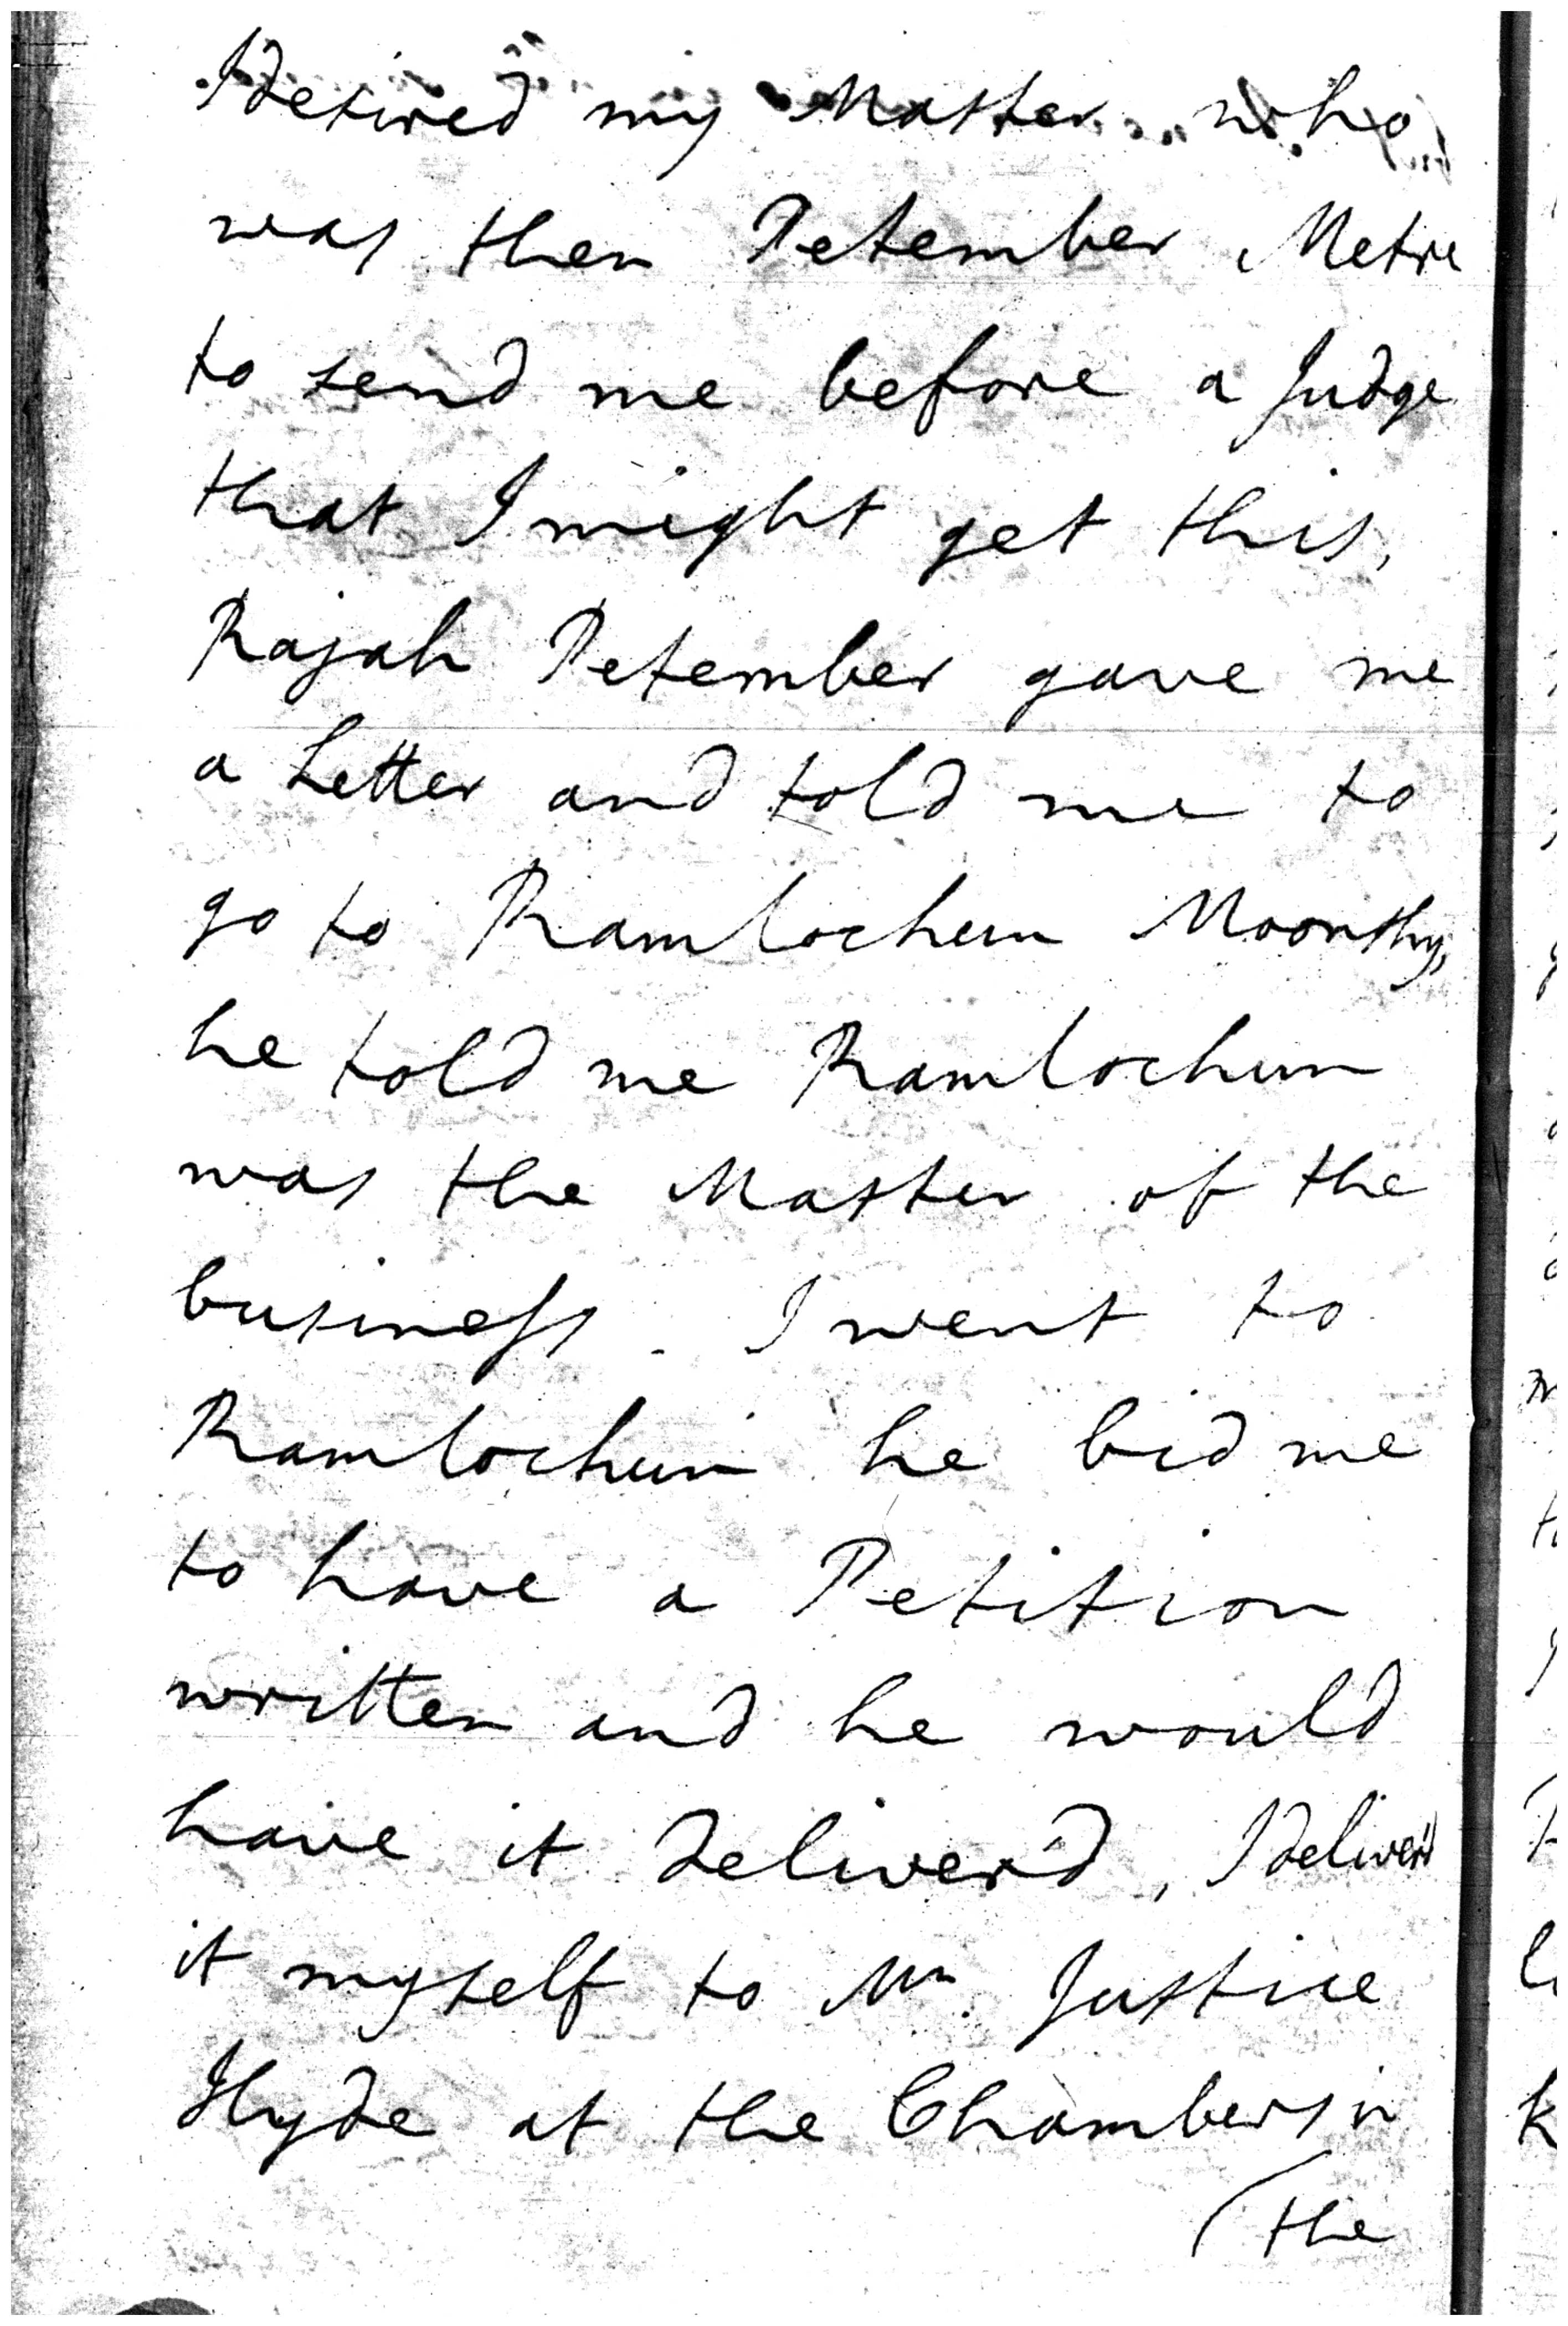 I desired my Master who
was then Petember Metre
to send me before a Judge
that I might get this,
Rajah Petember gave me
a Letter and told me to
go to Ramlochun Moonshy,
he told me Ramlochun
was the Master of the
business. I went to
Ramlochun he bid me
to have a Petition
written and he would
have it deliver'd, I deliver'd
it myself to Mr. Justice
Hyde at the Chambers in
(the